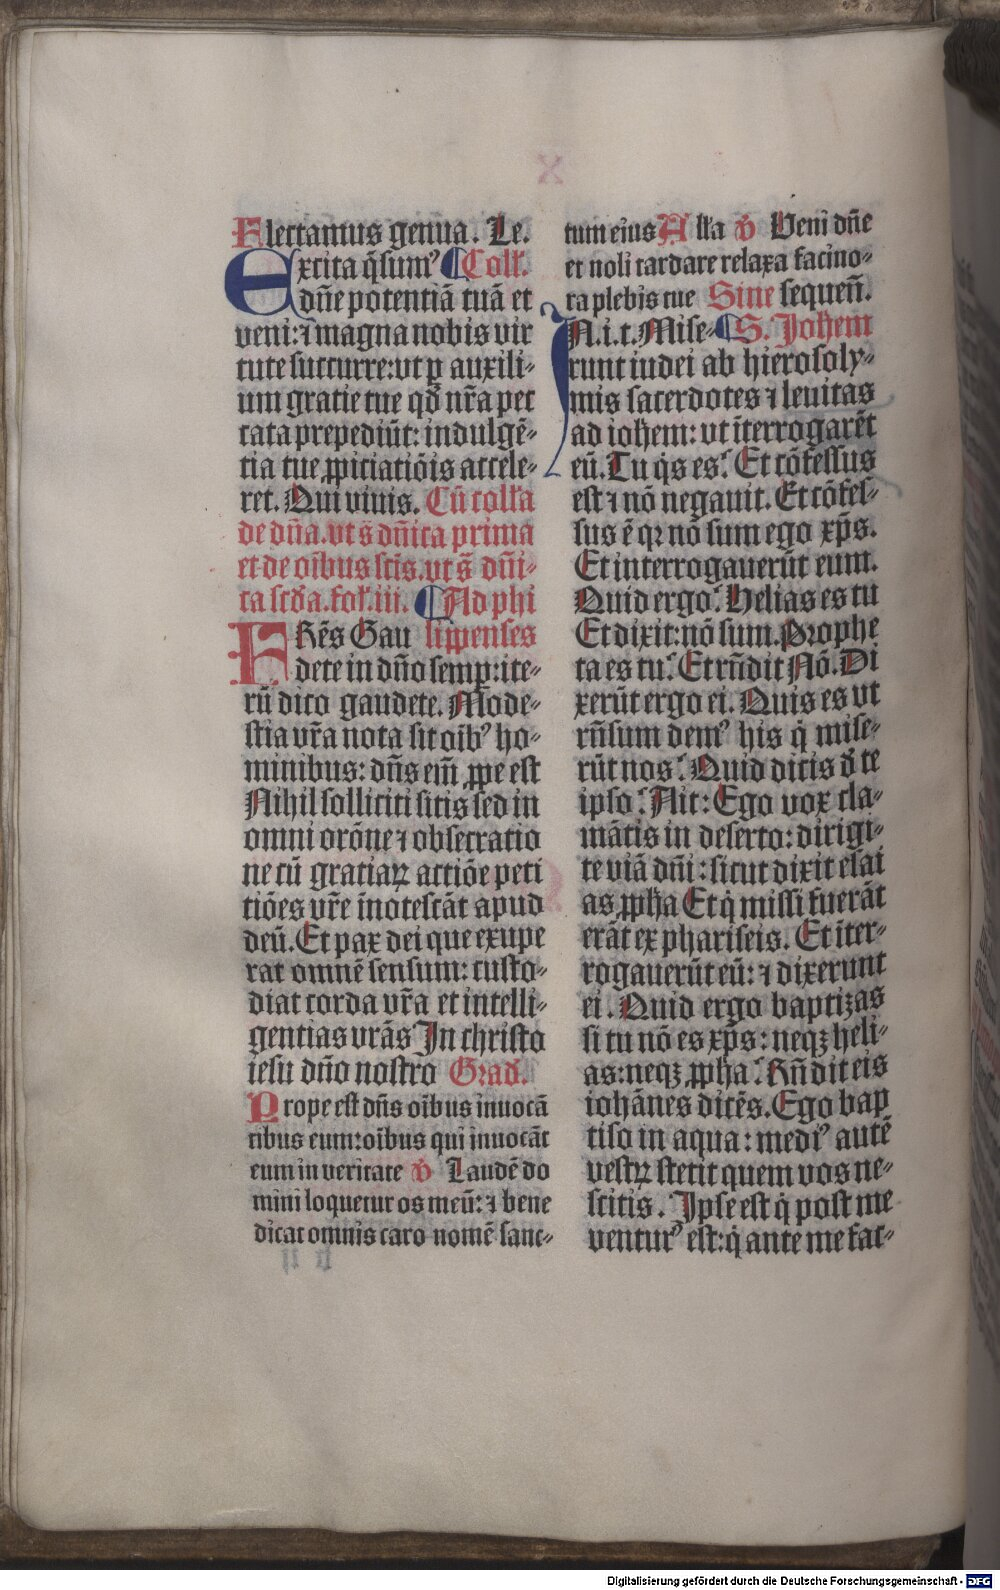 Flectamus genua. Le.
Excita q̄sumꝰ ¶Coll'.
dn̄e potentiā tuā et
veni: ⁊ magna nobis vir
tute succurre: vt ꝑ auxili-
um gratie tue qd̓ nr̄a pec
cata prepediūt: indulgē-
tia tue ꝓpiciatiōis accele-
ret. Qui viuis. Cū coll'a
de dn̄a. vt s̄ dn̄ica prima
et de oībus scīs. vt s̄ dn̄i-
ca scd̓a. fol'. iii. ¶Ad phi
FRēs Gau lippenses
dete in dn̄o semꝑ: ite-
rū dico gaudete. Mode-
stia vr̄a nota sit oībꝰ ho-
minibus: dn̄s em̄ ꝓpe est
Nihil solliciti sitis sed in
omni orōne ⁊ obsecratio
ne cū gratiaꝝ actiōe peti
tiōes vr̄e īnotescāt apud
deū. Et pax dei que exupe
rat omnē sensum: custo-
diat corda vr̄a et intelli-
gentias vrās In christo
iesu dn̄o nostro Grad'.
Prope est dn̄s oībus inuocā
tibus eum: oībus qui inuocāt
eum in veritate v̓ Laudē do
mini loquetur os meū: ⁊ bene
dicat omnis caro nomē sanc-
tum eius All'a v̓ Veni dn̄e
et noli tardare relaxa facino-
ra plebis tue Sine sequen̄.
IN. i. t. Mise- ¶S. Johem
runt iudei ab hierosoly-
mis sacerdotes ⁊ leuitas
ad iohem: vt īterrogarēt
eū. Tu q̇s es? Et cōfessus
est ⁊ nō negauit. Et cōfes-
sus ē qꝛ nō sum ego xp̄s.
Et interrogauerūt eum.
Quid ergo? Helias es tu
Et dixit: nō sum. Prophe
ta es tu? Et rn̄dit Nō. Di
xerūt ergo ei. Quis es vt
rn̄sum demꝰ his q̇ mise-
rūt nos? Quid dicis d̓ te
ipso? Ait: Ego vox cla-
mātis in deserto: dirigi-
te viā dn̄i: sicut dixit esai
as ꝓpha Et q̇ missi fuerāt
erāt ex phariseis. Et īter-
rogauerūt eū: ⁊ dixerunt
ei. Quid ergo baptizas
si tu nō es xp̄s: neqꝫ heli-
as: neqꝫ ꝓpha? Rn̄dit eis
iohānes dicēs. Ego bap
tiso in aqua: mediꝰ autē
vestꝝ stetit quem vos ne-
scitis. Ipse est q̇ post me
venturꝰ est: q̇ ante me fac-
Digitalisierung gefördert durch die Deutsche Forschungsgemeinschaft - DFG